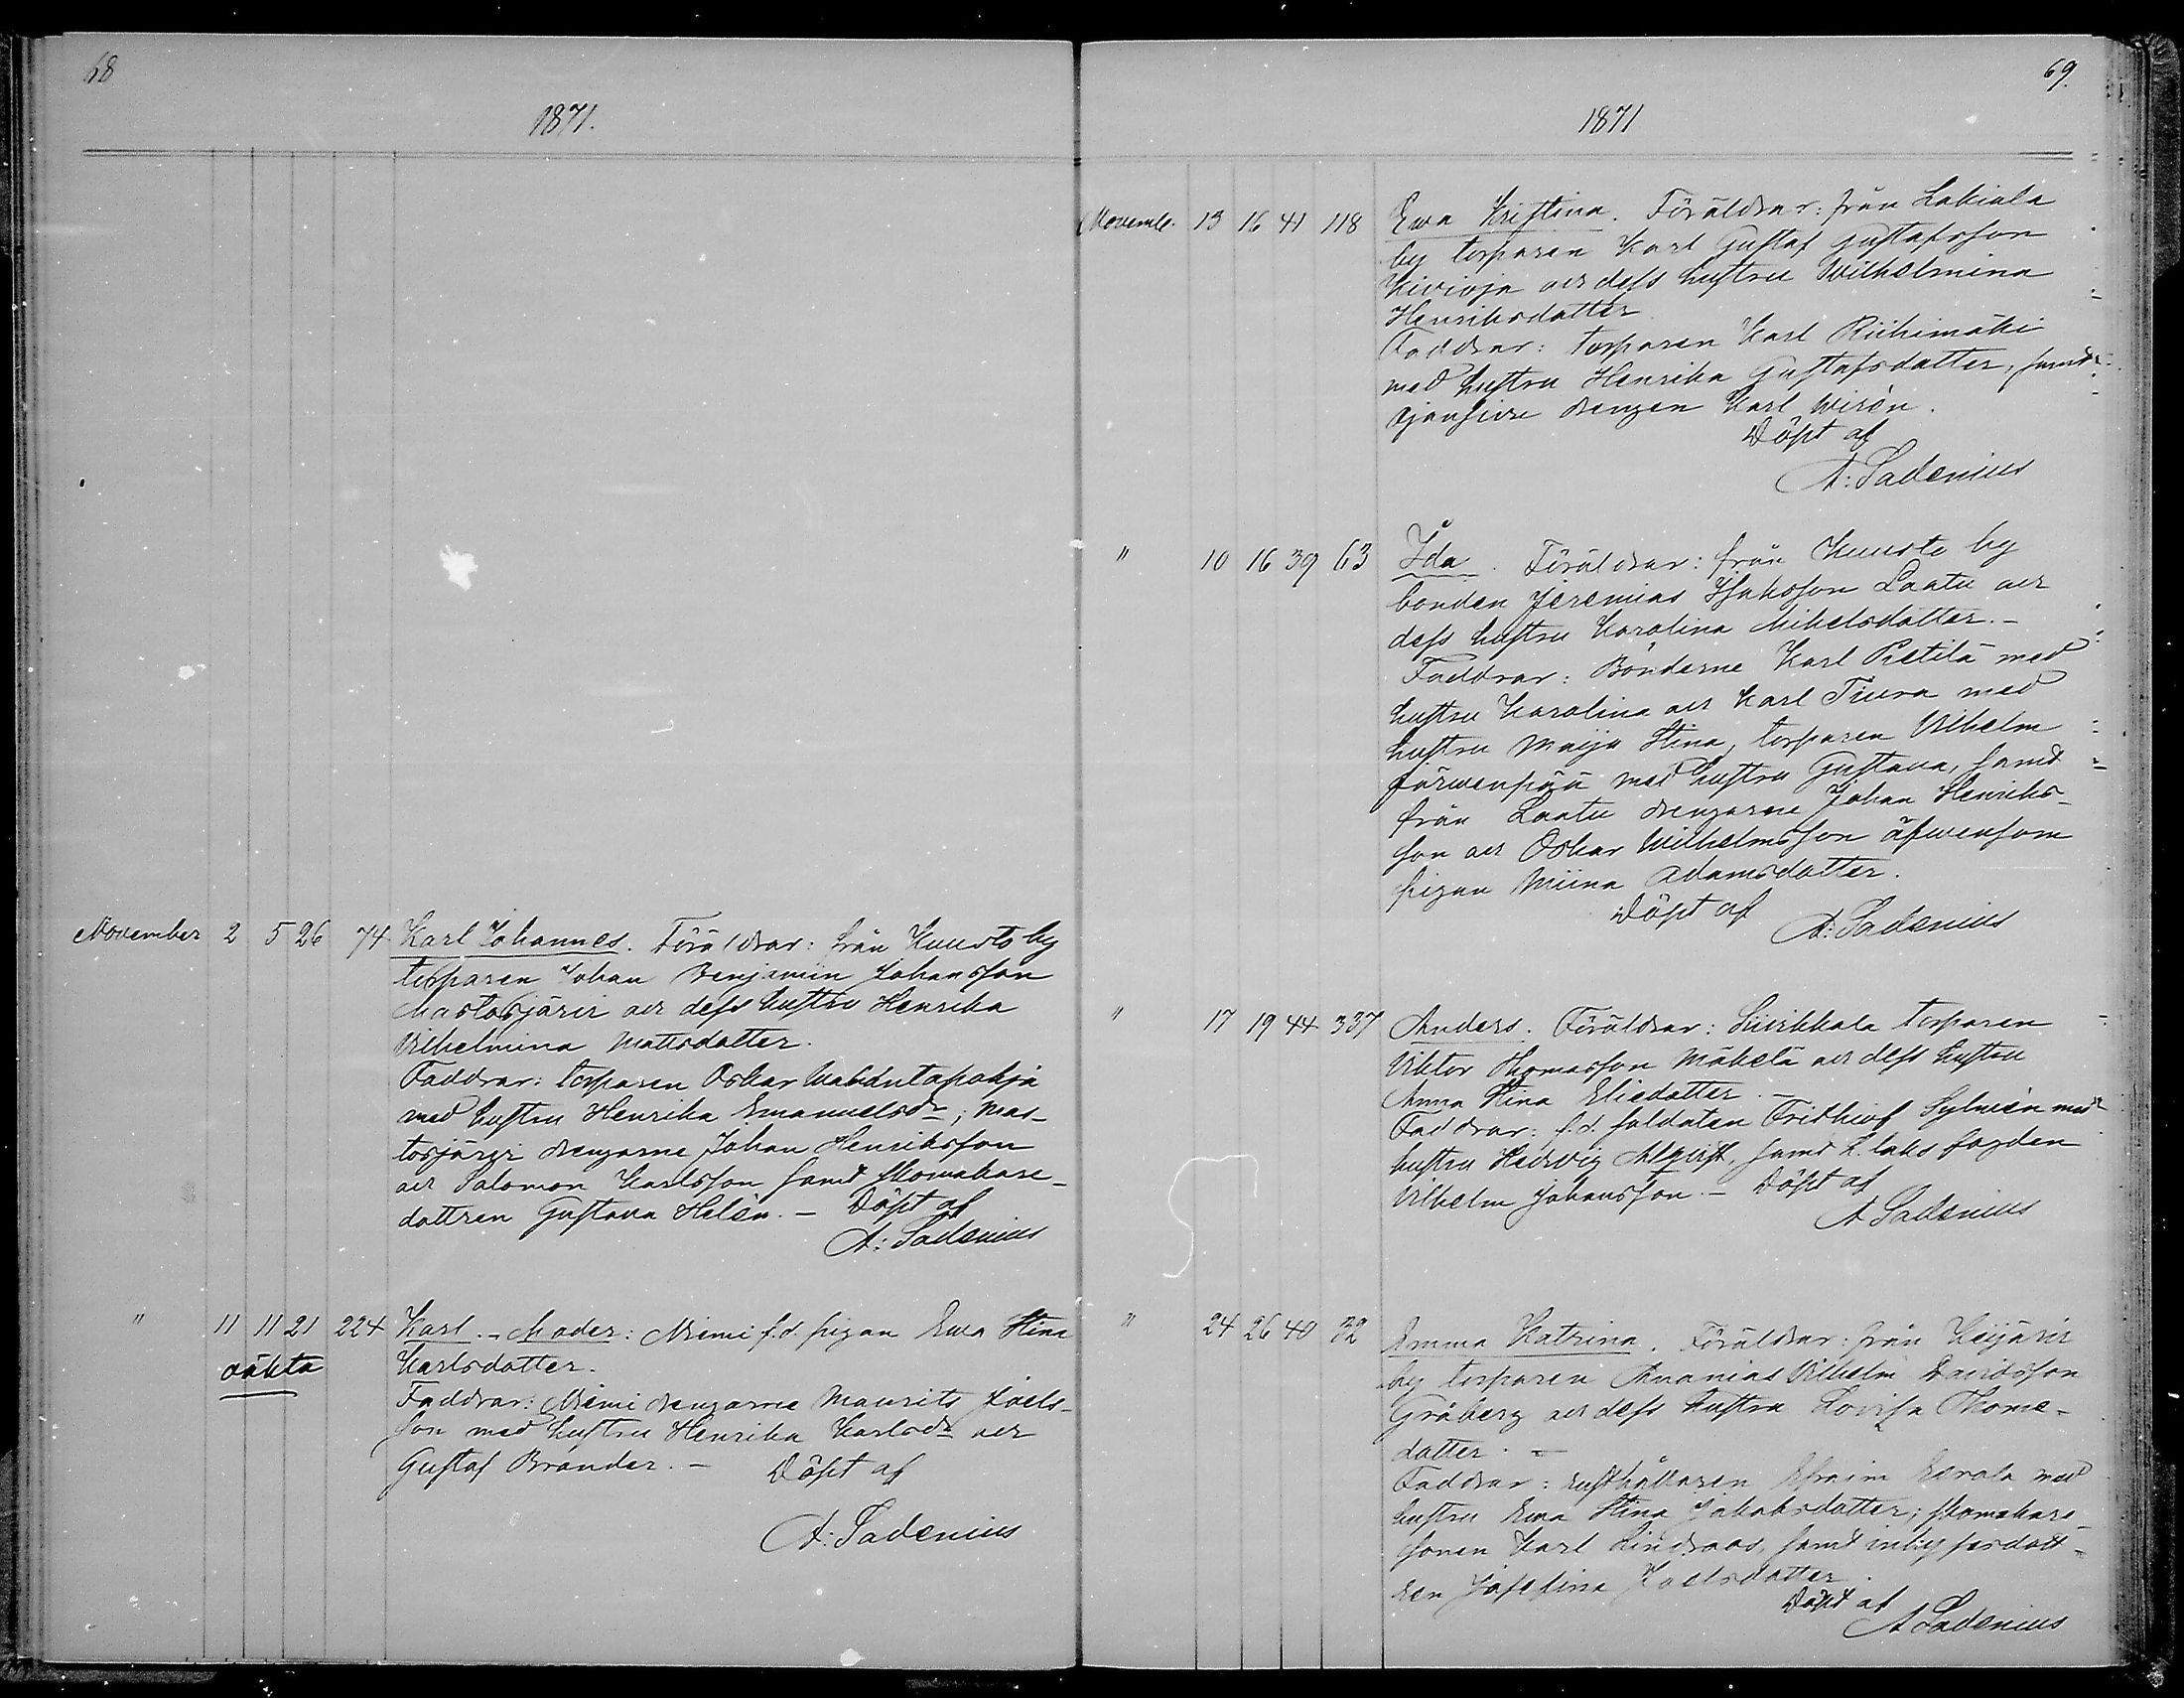 68
1871.
November 2 5 26 74 Karl Johannes. Föräldrar: från Kuusto by
torparen Johan Benjamin Johansson
Mastosjärvi och dess hustru Henrika
Vilhelmina Mattsdotter.
Faddrar: torparen Oskar
med hustru Henrika Emanuelsdr; Mas-
tosjärvi drengarne Johan Henriksson
och Salomon Karlsson samt skomakare-
dottren Gustava Helén. – Döpt af
A: Sadenius
" 11 11 21 224 Karl. – Moder: Niemi f.d. pigan Ewa Stina
oäkta Karlsdotter.
Faddrar: Niemi drengarne Maurits Joels-
son med hustru Henrika Karlsdr och
Gustaf Brander. – Döpt af
A: Sadenius
69.
1871
Novemb. 13 16 41 118 Ewa Kristina. Föräldrar: från Lahiala
by torparen Karl Gustaf Gustafsson
Kivioja och dess hustru Wilhelmina
Henriksdotter
Faddrar: torparen Karl Riihimäki
med hustru Henrika Gustafsdotter, samt
drengen Karl Wirén.
Döpt af
A: Sadenius
" 10 16 39 63 Ida. Föräldrar: från Kuusto by
bonden Jeremias Isaksson Laatu och
dess hustru Karolina Mikelsdotter. –
Faddrar: Bönderne Karl Pietilä med
hustru Karolina och Karl Tiura med
hustru Maija Stina, torparen Vilhelm
Järwenpää med hustru Gustava, samt
från Laatu drengarne Johan Henriks-
son och Oskar Wilhelmsson äfwensom
pigan Miina Adamsdotter.
Döpt af
A: Sadenius
" 17 19 44 337 Anders. Föräldrar: Siivikkala torparen
Viktor Thomasson Mäkelä och dess hustru
Anna Stina Eliedotter. –
Faddrar: f.d. soldaten Frithiof Sylwén med
hustru Hedvig Alqvist, samt
Vilhelm Johansson. – Döpt af
A Sadenius
" 24 26 40 32 Emma Katrina. Föräldrar: från Keijärvi
by torparen Ananias Vilhelm Davidsson
Gråberg och dess hustru Lovisa Thome-
dotter. –
Faddrar: rusthållaren Efraim Eerola med
hustru Ewa Stina Jakobsdotter; skomakare-
sonen Karl Lindroos, samt inhysesdott-
ren Josefina Joelsdotter.
Döpt af
A Sadenius